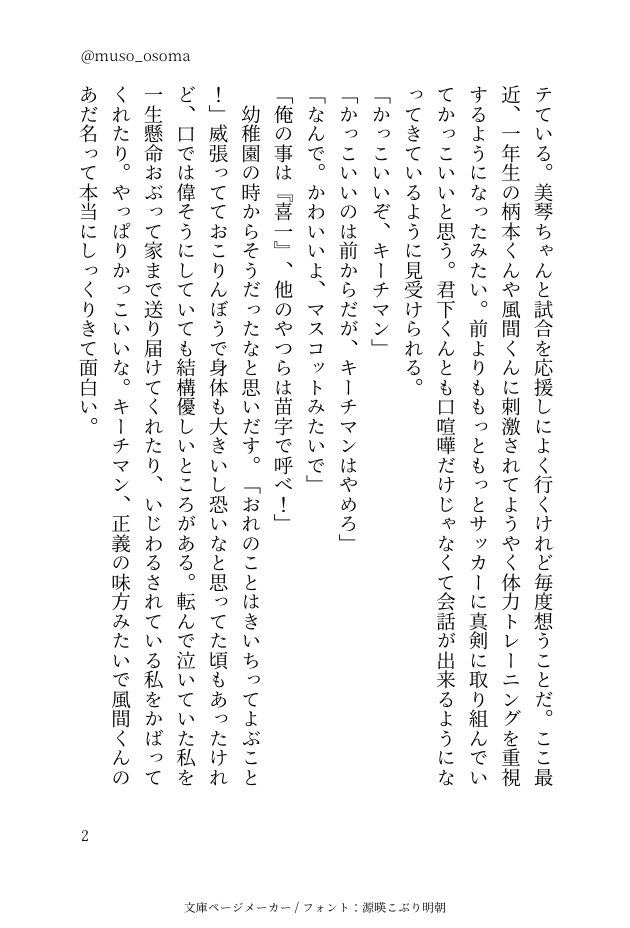 @muso_osoma
テている。美琴ちゃんと試合を応援しによく行くけれど毎度想うことだ。ここ最
近、一年生の柄本くんや風間くんに刺激されてようやく体力トレーニングを重視
するようになったみたい。前よりももっともっとサッカーに真剣に取り組んでい
てかっこいいと思う。君下くんとも口喧嘩だけじゃなくて会話が出来るようにな
ってきているように見受けられる。
「かっこいいぞ、キーチマン」
「かっこいいのは前からだが、キーチマンはやめろ」
「なんで。かわいいよ、マスコットみたいで」
「俺の事は『喜一』、他のやつらは苗字で呼べ！」
　幼稚園の時からそうだったなと思いだす。「おれのことはきいちってよぶこと
！」威張ってておこりんぼうで身体も大きいし恐いなと思ってた頃もあったけれ
ど、口では偉そうにしていても結構優しいところがある。転んで泣いていた私を
一生懸命おぶって家まで送り届けてくれたり、いじわるされている私をかばって
くれたり。やっぱりかっこいいな。キーチマン、正義の味方みたいで風間くんの
あだ名って本当にしっくりきて面白い。
2
文庫ページメーカー / フォント：源暎こぶり明朝